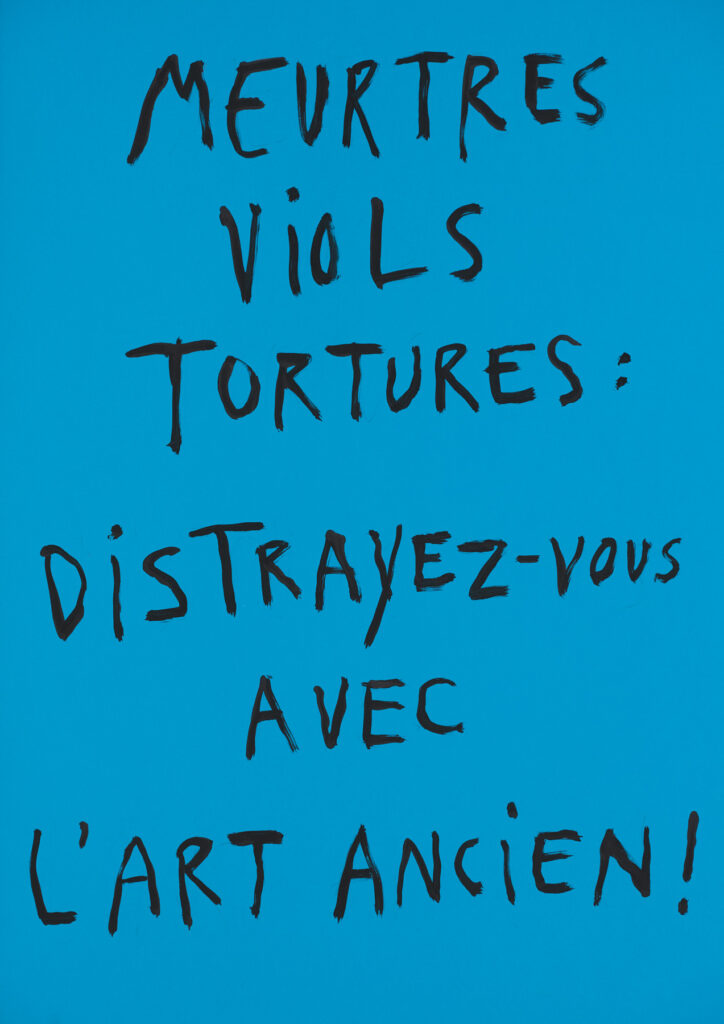 MEURTRES
ViOLS
TORTURES :
DiSTRAYEZ-VOUS
AVEC
L'ART ANCiEN !